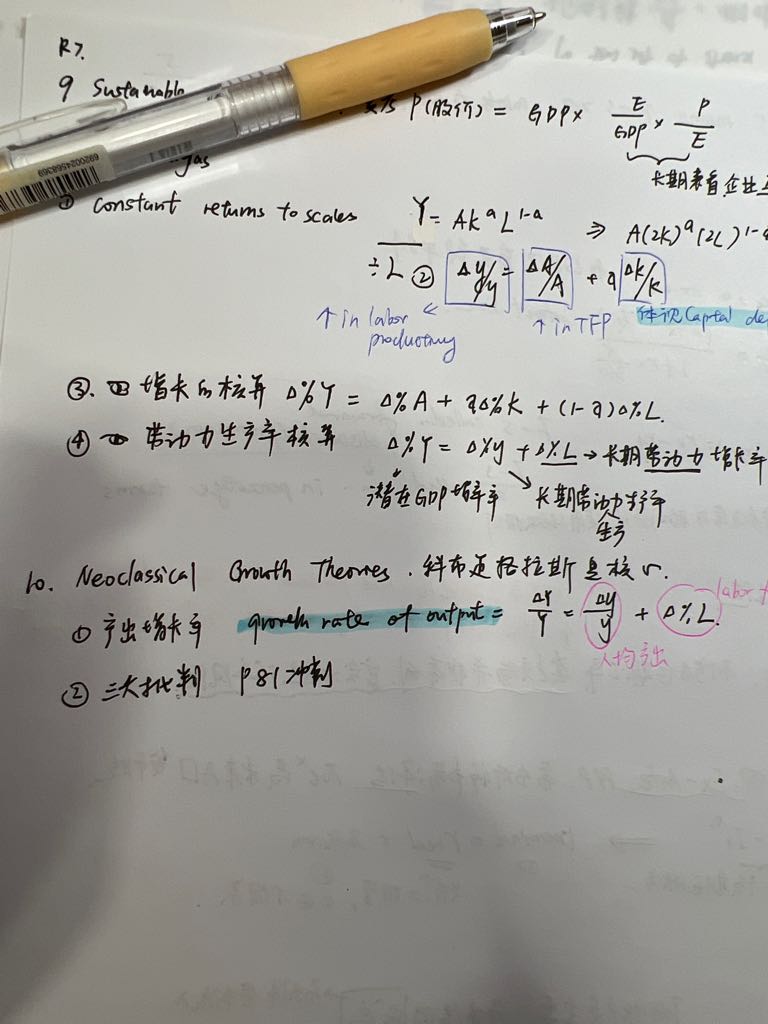 R7.
9 Sustainable
P(股价) = GDP × E/GDP × P/E
长期来看企业
6920024568369
① Constant returns to scales Y = AK^a L^1-a ⇒ A(2K)^a (2L)^1-a
÷L ② Δy/y = ΔA/A + a Δk/k
↑ in labor productivity ← ↑ in TFP 体现Capital de
③. 增长的核算 Δ%Y = Δ%A + aΔ%K + (1-a)Δ%L.
④ 劳动力生产率核算 Δ%Y = Δ%y + Δ%L → 长期劳动力增长率
潜在GDP增率 长期劳动力生产率
生产
10. Neoclassical Growth Theories. 科布道格拉斯是核心.
labor
① 产出增长率 growth rate of output = ΔY/Y = Δy/y + Δ%L.
人均产出
② 三大批判 P81冲刺